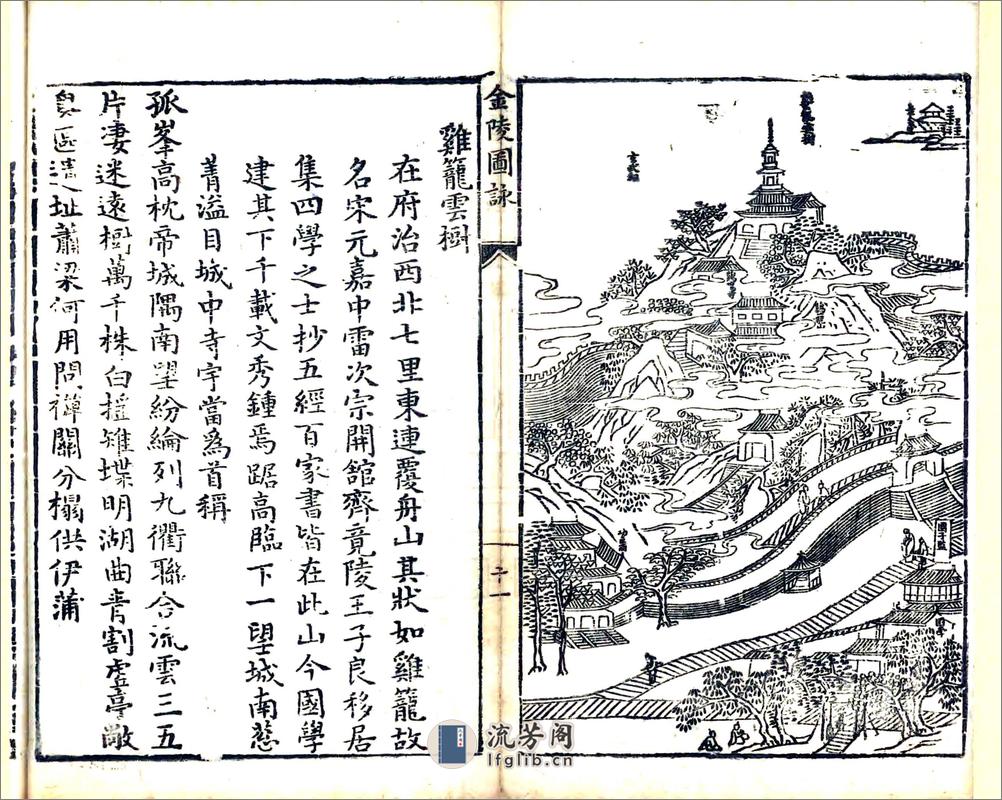 國子監
金陵圖詠
雞籠雲樹
在府治西北七里東連覆舟山其狀如雞籠故
名宋元嘉中雷次宗開館齊竟陵王子良移居
集四學之士抄五經百家書皆在此山今國學
建其下千載文秀鍾焉踞高臨下一望城南葱
菁溢目城中寺宇當爲首稱
孤峯高枕帝城隅南望紛綸列九衢聯合流雲三五
片淒迷遠樹萬千株白擡雉堞明湖曲青割虛亭敞
區遺址蕭梁何用問禪關分榻供伊蒲
流芳阁
lfglib.cn